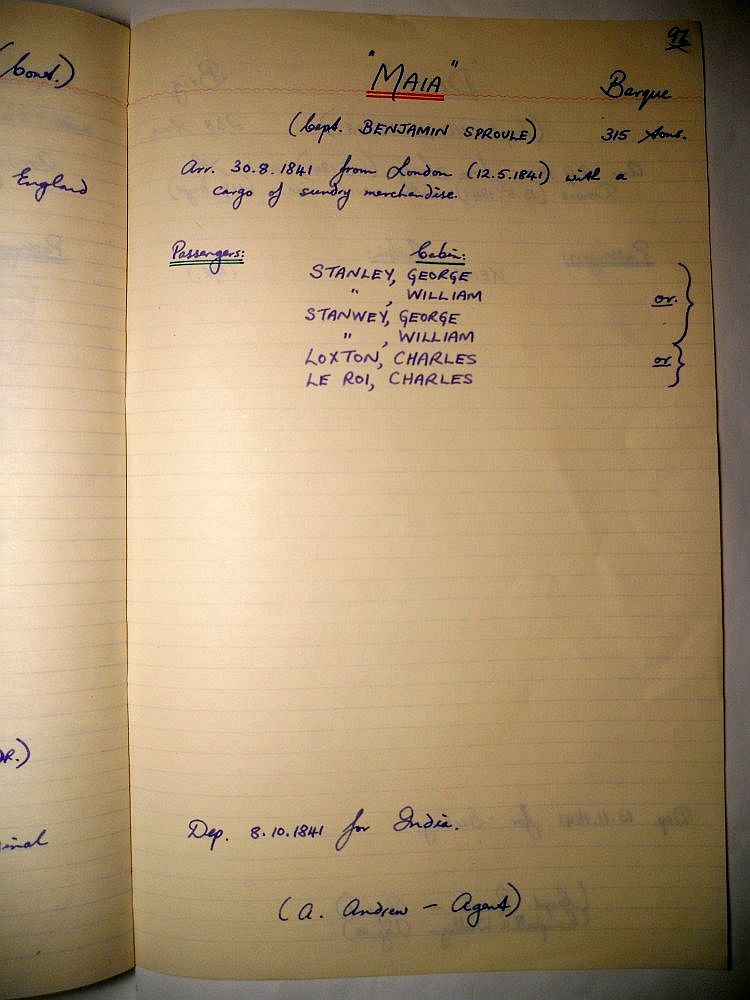 (Cont.)
England
DR.)
inal
96
"MAIA"
Barque
(Capt. BENJAMIN SPROULE)
315 tons.
Arr. 30.8.1841 from London (12.5.1841) with a
cargo of sundry merchandise.
Passengers:
Cabin:
STANLEY, GEORGE
" , WILLIAM
or
STANWEY, GEORGE
" , WILLIAM
LOXTON, CHARLES
or
LE ROI, CHARLES
Dep. 8.10.1841 for India.
(A. Andrew - Agent)